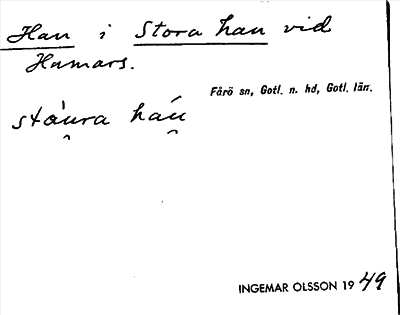 Hau i Stora hau vid
Hamars.
Fårö sn, Gotl. n. hd, Gotl. län.
stàu̯ra háu̯
INGEMAR OLSSON 1949